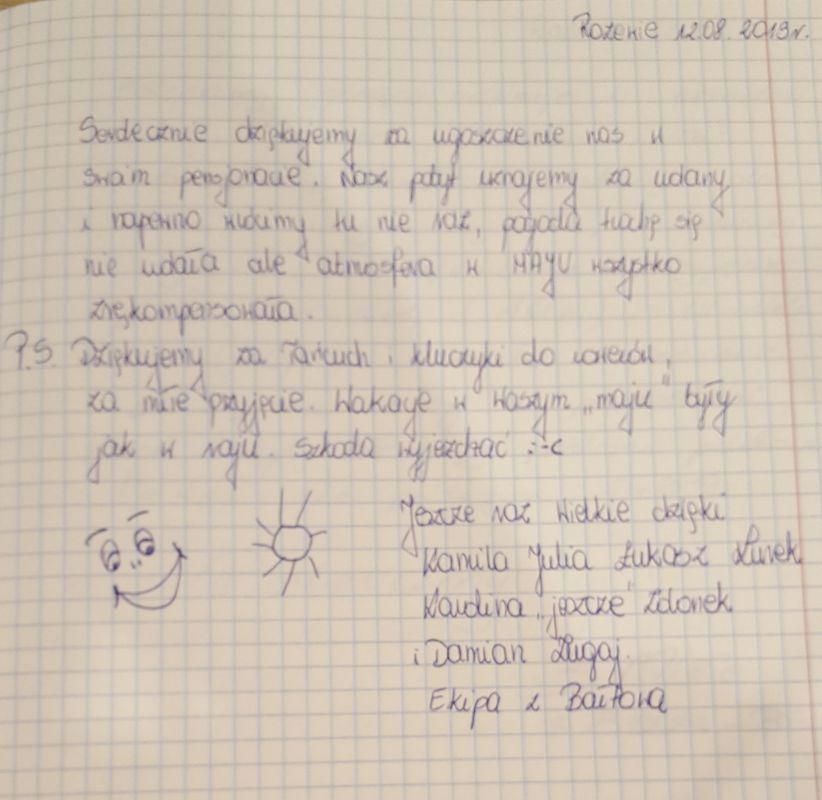 Rozenie 12.08.2013r.
Serdecznie dziękujemy za ugoszczenie nas w
swaim pensjonacie. Nasz pobyt uznajemy za udany
i napewno wrócimy tu nie raz, pogoda trochę się
nie udała ale atmosfera w MAYU wszystko
zrekompensowała.
P.S. Dziękujemy za łańcuch i kluczyki do rowerów,
za miłe przyjęcie. Wakacje w Waszym „maju” były
jak w raju. Szkoda wyjeżdżać :-c
Jeszcze raz Wielkie dzięki
Kamila Julia Łukasz Żurek
Klaudina „jeszcze” Zdonek
i Damian Ługaj.
Ekipa z